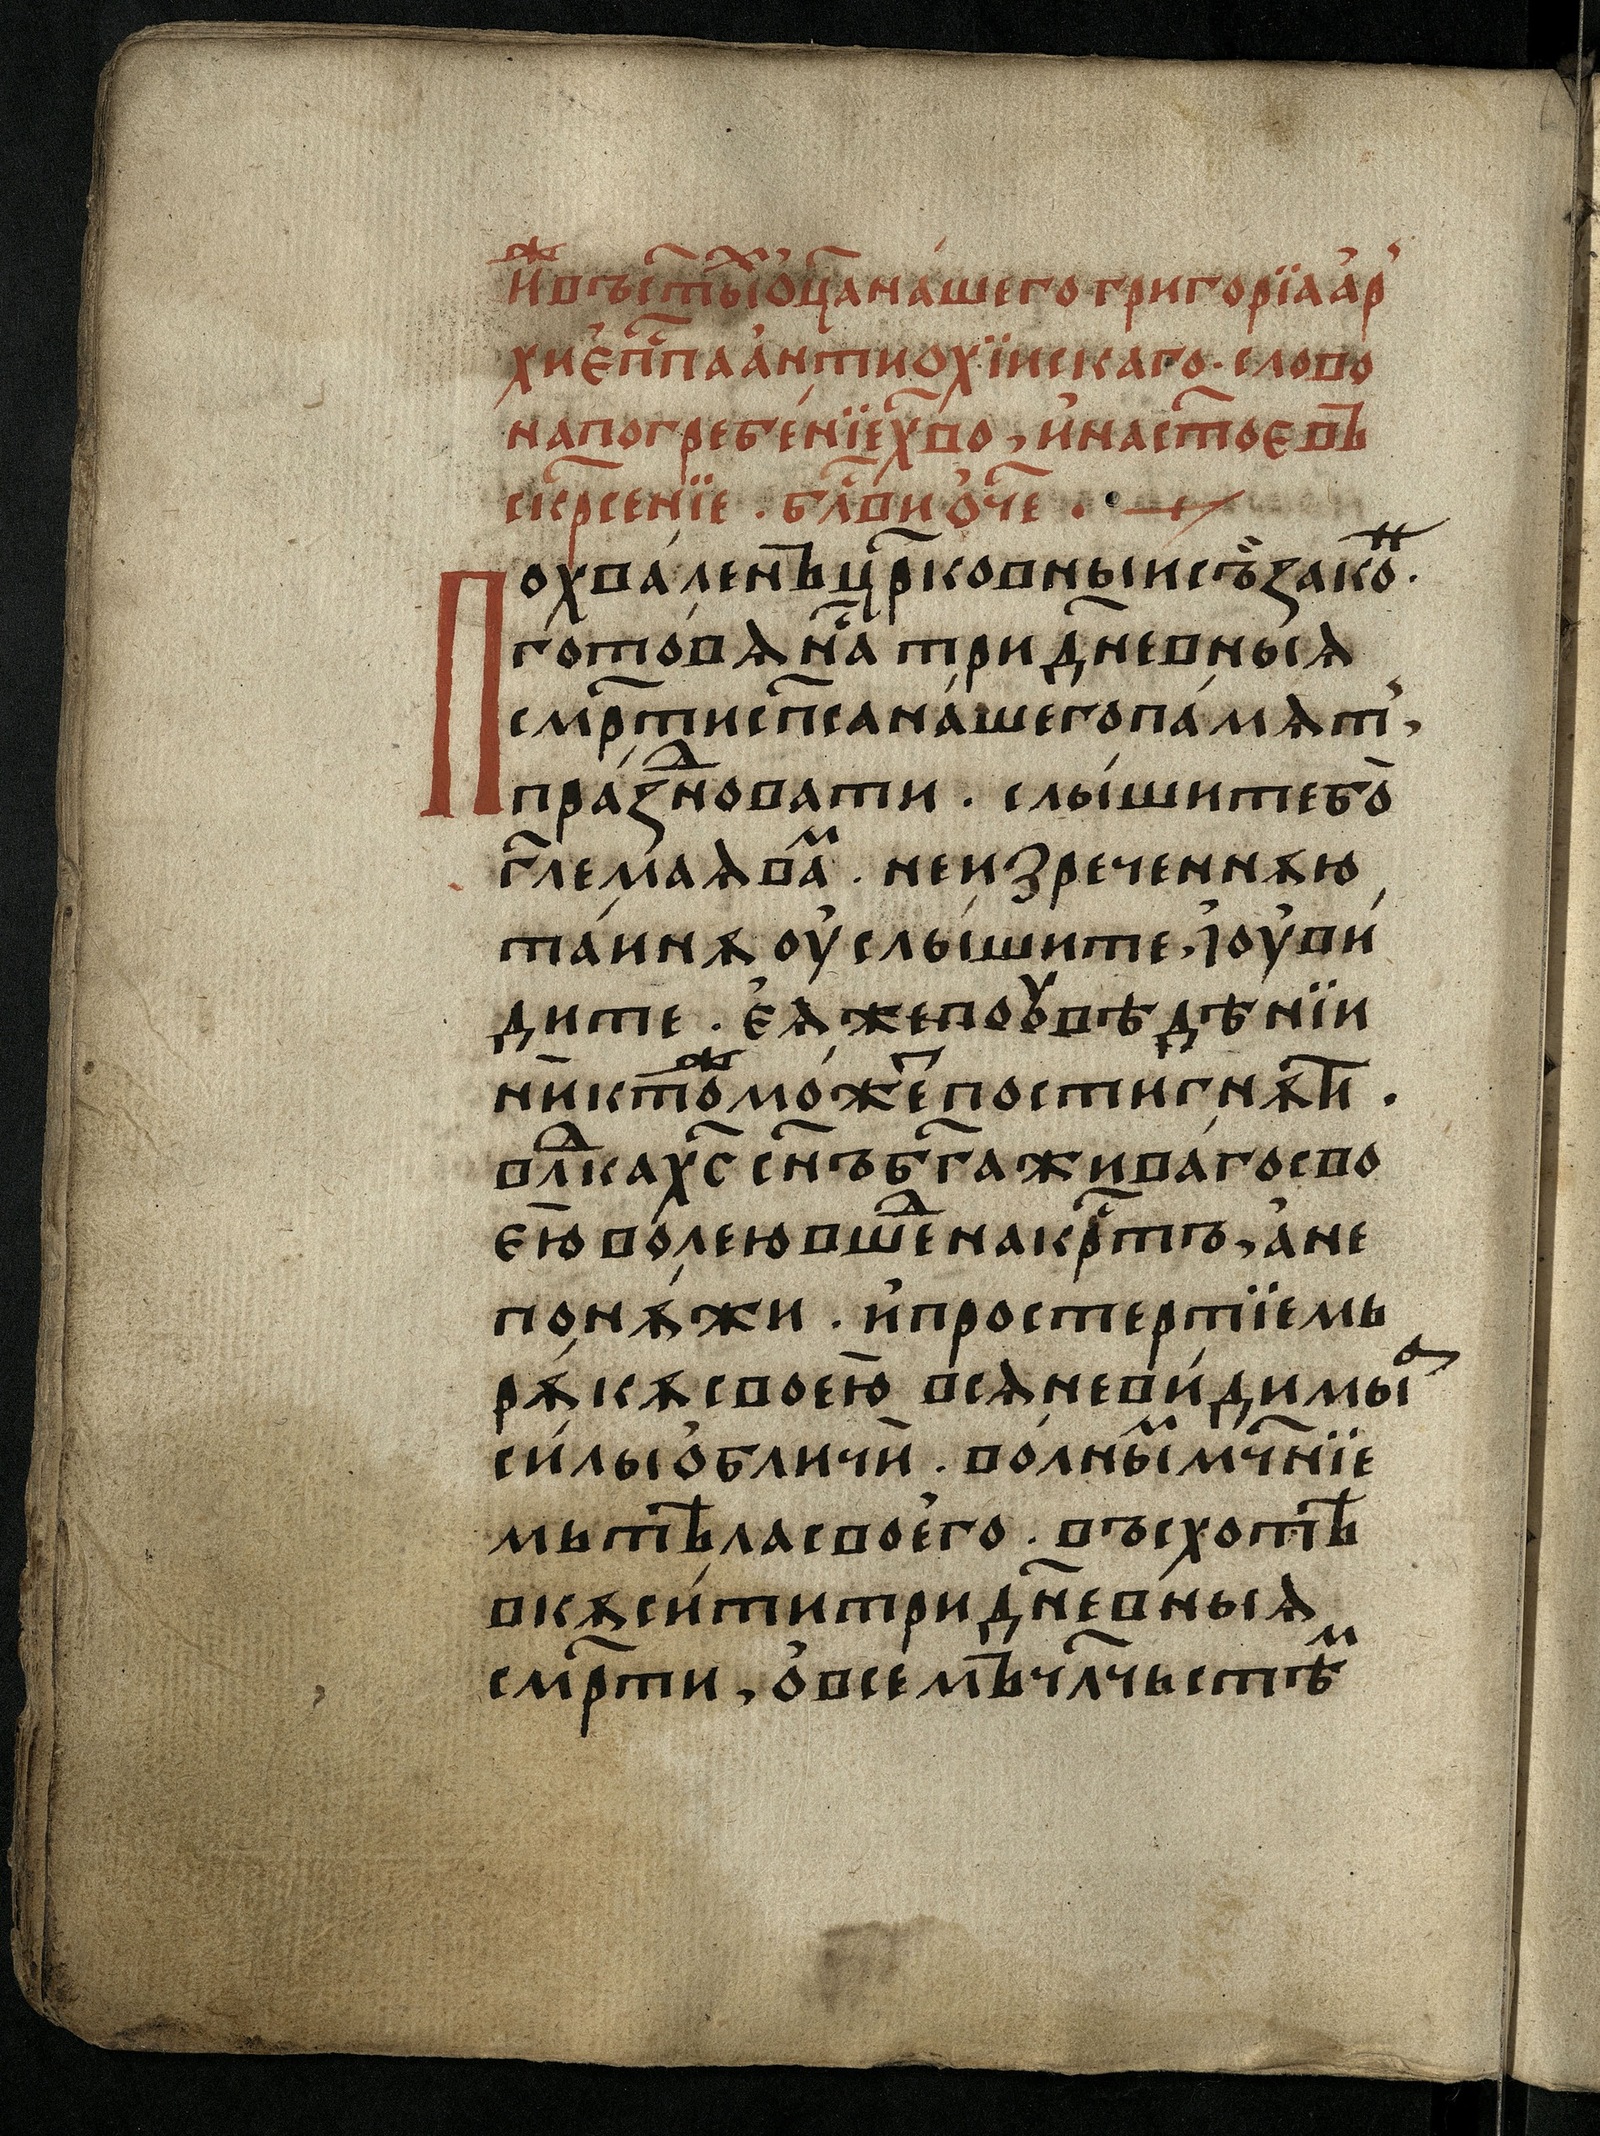 И҆ⷤ въ ст҃ыⷯ ѻ҆ц҃а на́шего григорїа а҆р
хиеп҃па а҆нтиохїискаго · слово
на погребе́нїе хв҃о , и҆ на ст҃ое въ
скр҃сенїе · бл҃ви ѻ҆́ч҃е ·
Похва́ленъ цр҃ковныи съ̀ зако́ⷩ ·
гото́вѧ н҃а три дн҃евныѧ
смр҃ти сп҃са на́шего па́мѧт ,
пра́зⷣновати · слы́шите бо̀
гл҃емаѧ ваⷨ · неизреченнѫю
та́инѫ оу҆слы́шите , і҆ оу҆ви́
дите · е҆ѧже по ѹвѣдѣнїи
никто́ⷤ мо́жеⷮ постигнѫ́ти ·
влⷣка хс҃ сн҃ъ бг҃а жива́го сво
ею̀ во́лею вшеⷣ на крⷭ҇тъ , а҆ не
по нѫ́жи · и҆ простертїемь
рѫ́кѫ своею̀ всѧ неви́димыѧ
си́лы ѻ҆бличѝ · во́лныⷨ мч҃нїе
мь тѣ́ла свое҆го · въсхотѣ
вкѫси́ти три дн҃евныѧ
смр҃ти , ѻ҆ всемъ чл҃чьстѣⷨ